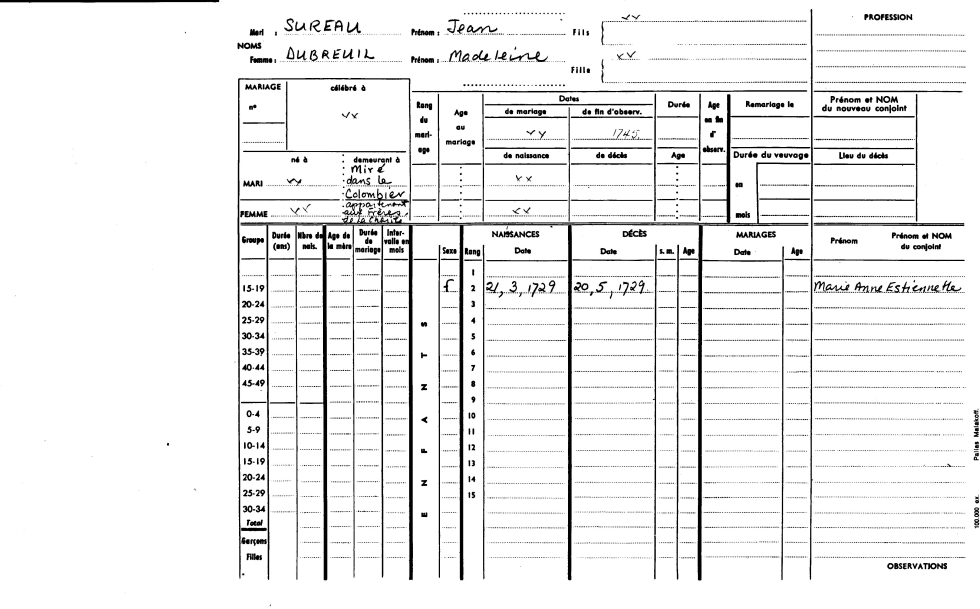 PROFESSION
Mari : SUREAU Prénom : Jean Fils { xx
NOMS
Femme : DUBREUIL Prénom : Madeleine Fille { xx
MARIAGE célébré à
n° xx
Rang du mariage Age au mariage Dates Durée Age en fin d'observ. Remariage le Prénom et NOM du nouveau conjoint
de mariage de fin d'observ.
xx 1745
de naissance de décès Age Durée du veuvage Lieu du décès
né à demeurant à
MARI xx Miré dans le Colombier appartenant aux Frères de la Charité xx en
FEMME xx xx mois
Groupe Durée (ans) Nbre de nais. Age de la mère Durée de mariage Inter-valle en mois ENFANTS Sexe Rang NAISSANCES DÉCÈS MARIAGES Prénom Prénom et NOM du conjoint
Date Date s. m. Age Date Age
1
15-19 f 2 21, 3, 1729 20, 5, 1729 Marie Anne Estiennette
20-24 3
25-29 4
30-34 5
35-39 6
40-44 7
45-49 8
9
0-4 10
5-9 11
10-14 12
15-19 13
20-24 14
25-29 15
30-34
Total
Garçons
Filles
OBSERVATIONS
100.000 ex. Pallas Malakoff.